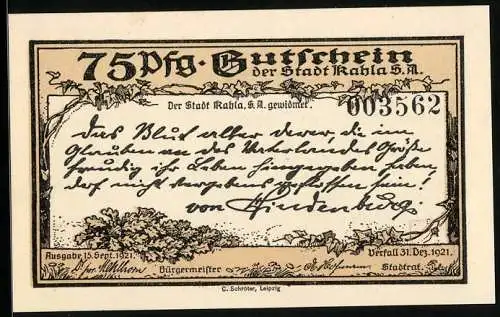 75 Pfg. Gutschein
der Stadt Kahla S.A.
Der Stadt Kahla, S.A. gewidmet.
003562
Das Blut aller derer, die im
Glauben an des Vaterlandes Größe
freudig ihr Leben hingegeben haben,
darf nicht vergebens geflossen sein!
von Hindenburg.
Ausgabe 15. Sept. 1921.
Verfall 31. Dez. 1921.
Bürgermeister
Stadtrat.
C. Schröter, Leipzig